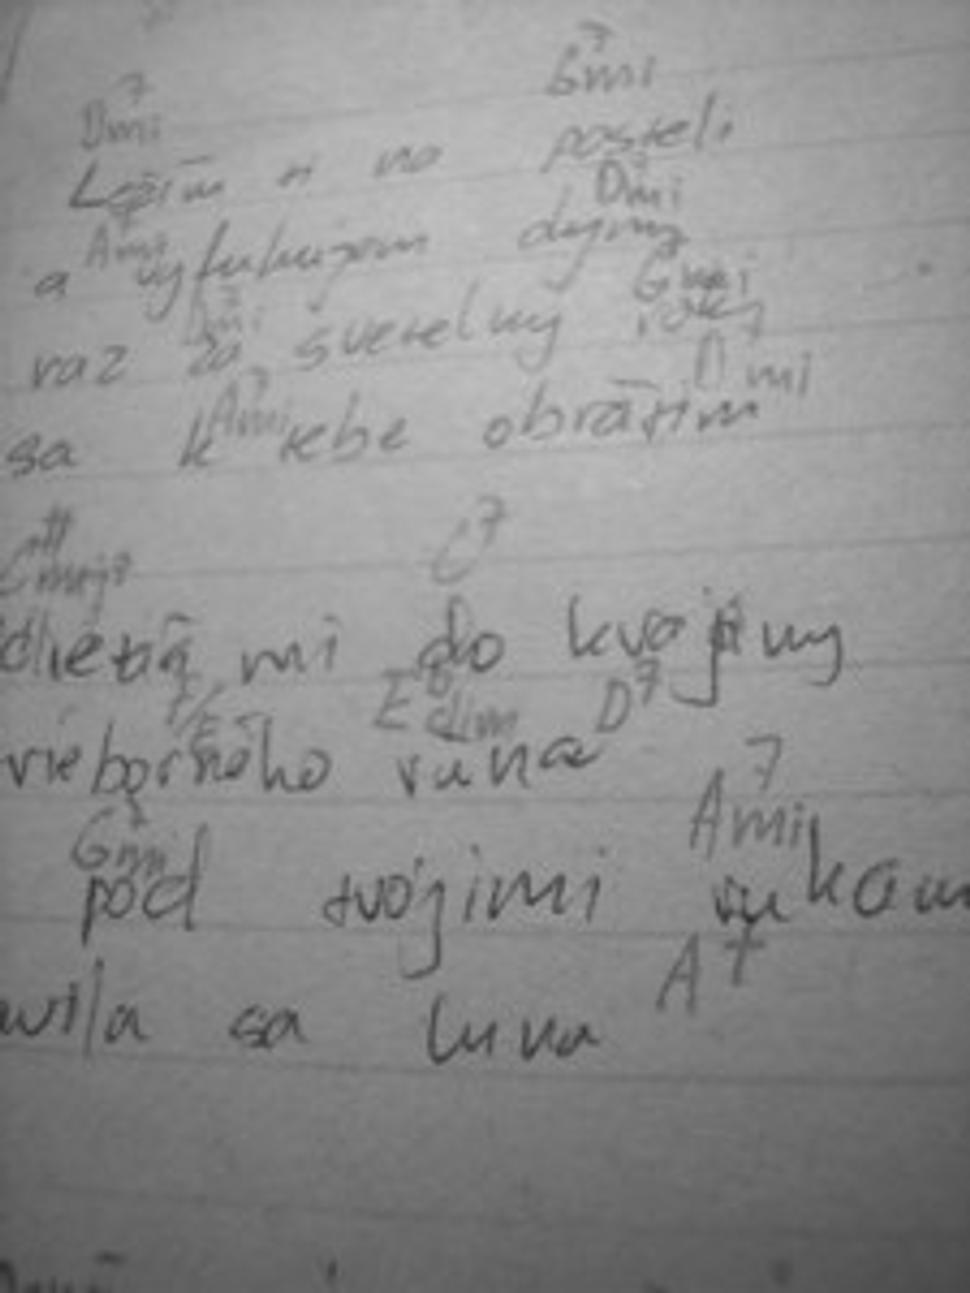 Dmi7 Gmi7
Ležím ti na posteli
Ami7 Dmi7
a vyfukujem dymy
Dmi7 Gmi7
raz za svetelný
Ami7 Dmi
sa k tebe obrátim
C7
mi do krajiny
Edim D7
rieborného runa
Gmi7 Ami7
pod tvojimi rukam
A+
avila sa luna